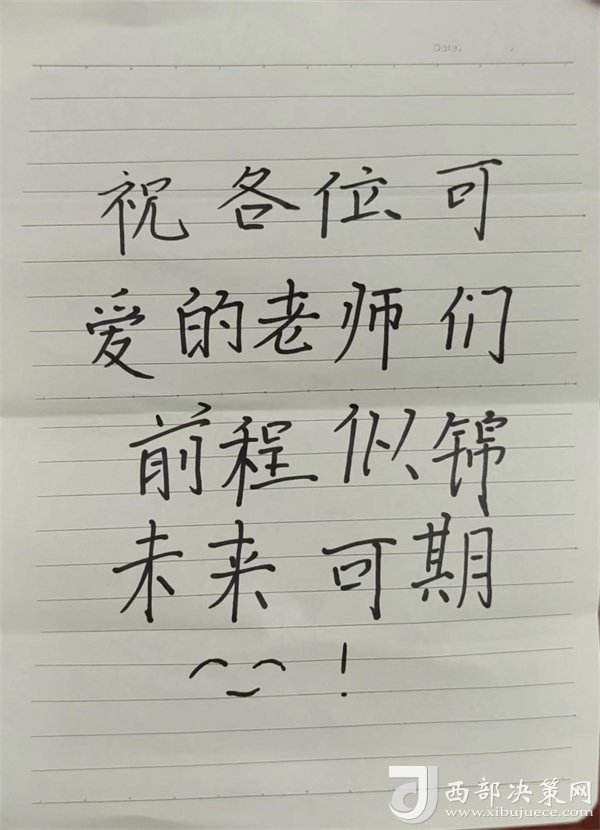 Date.
祝各位可
爱的老师们
前程似锦
未来可期
!
西部决策网
www.xibujuece.com